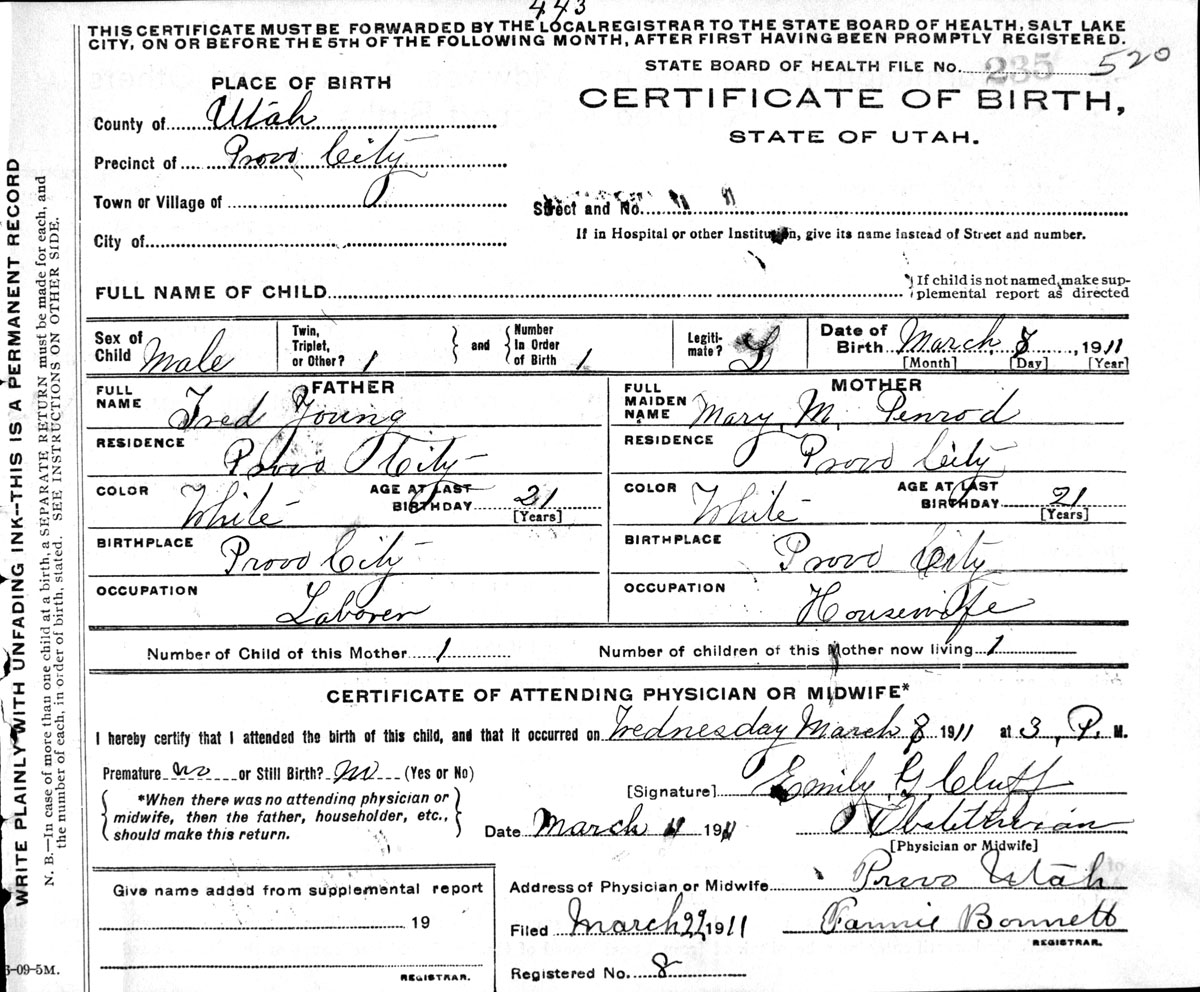 443
THIS CERTIFICATE MUST BE FORWARDED BY THE LOCAL REGISTRAR TO THE STATE BOARD OF HEALTH, SALT LAKE
CITY, ON OR BEFORE THE 5TH OF THE FOLLOWING MONTH, AFTER FIRST HAVING BEEN PROMPTLY REGISTERED.
STATE BOARD OF HEALTH FILE NO. 235 520
PLACE OF BIRTH
CERTIFICATE OF BIRTH,
STATE OF UTAH.
County of Utah
Precinct of Provo City
Town or Village of
Street and No.
City of
If in Hospital or other Institution, give its name instead of Street and number.
FULL NAME OF CHILD
If child is not named, make sup-
plemental report as directed
Sex of Child Male
Twin, Triplet, or Other? 1
and
Number In Order of Birth 1
Legiti-mate?
Date of Birth March 8, 1911
[Month] [Day] [Year]
FATHER
FULL NAME Fred Young
RESIDENCE Provo City
COLOR White AGE AT LAST BIRTHDAY 21 [Years]
BIRTHPLACE Provo City
OCCUPATION Laborer
MOTHER
FULL MAIDEN NAME Mary M. Penrod
RESIDENCE Provo City
COLOR White AGE AT LAST BIRTHDAY 21 [Years]
BIRTHPLACE Provo City
OCCUPATION Housewife
Number of Child of this Mother 1 Number of children of this Mother now living 1
CERTIFICATE OF ATTENDING PHYSICIAN OR MIDWIFE*
I hereby certify that I attended the birth of this child, and that it occurred on Wednesday March 8 1911 at 3 P. M.
Premature no or Still Birth? no (Yes or No)
*When there was no attending physician or
midwife, then the father, householder, etc.,
should make this return.
[Signature] Emily G Cluff
Date March 11 1911 Obstetrician
[Physician or Midwife]
Give name added from supplemental report
19
REGISTRAR.
Address of Physician or Midwife Provo Utah
Filed March 22 1911 Fannie Bonnett
REGISTRAR.
Registered No. 8
WRITE PLAINLY WITH UNFADING INK--THIS IS A PERMANENT RECORD
N. B.—In case of more than one child at a birth, a SEPARATE RETURN must be made for each, and
the number of each, in order of birth, stated. SEE INSTRUCTIONS ON OTHER SIDE.
3-09-5M.